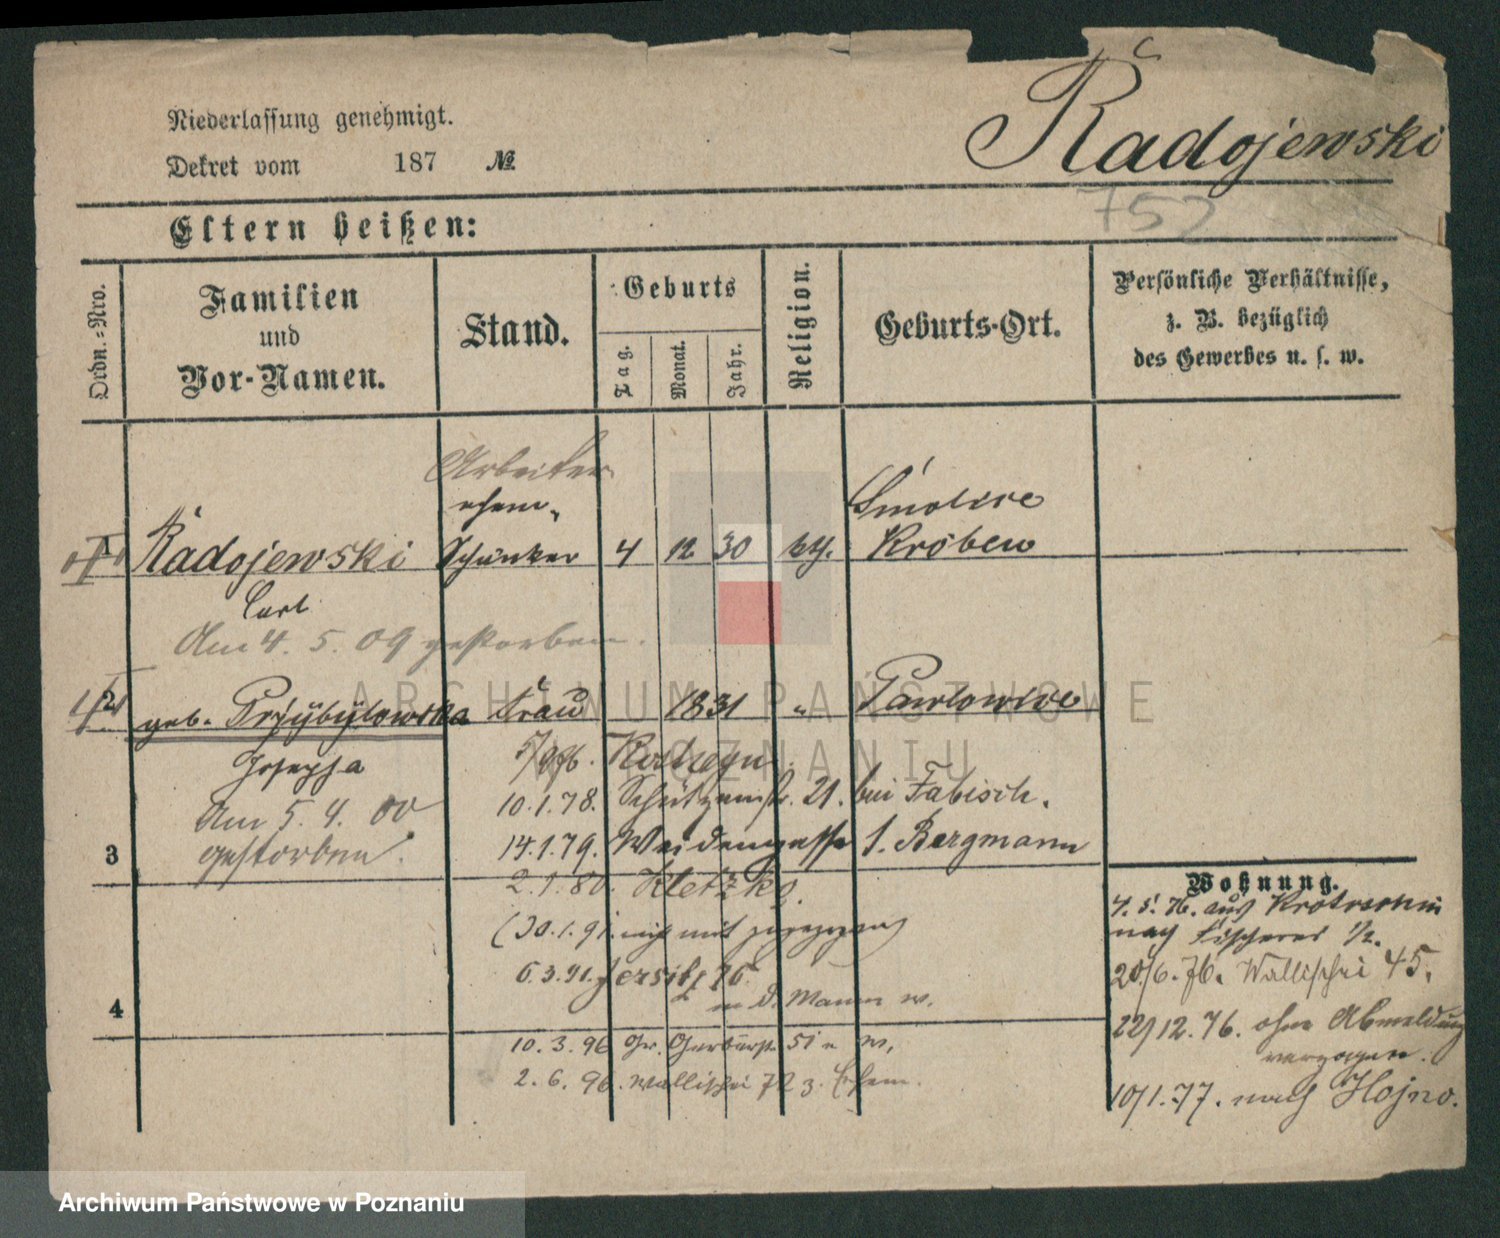 Niederlassung genehmigt.
Dekret vom 187 №
Radojewski
752
Eltern heißen:
Ordn.-Nro.
Familien
und
Vor-Namen.
Stand.
Geburts
Tag.
Monat.
Jahr.
Religion.
Geburts-Ort.
Persönliche Verhältnisse,
z. B. bezüglich
des Gewerbes u. s. w.
Arbeiter
ehem.
1 Radojewski Schänker 4 12 30 kth. Smolice
Kröben
Carl
Am 4. 5. 09 gestorben.
2 geb. Przybylowska Frau 1831 " Pawlowice
Josepha
Am 5. 4. 00
gestorben.
10.1.78. Schützenstr. 21. bei Fabisch.
3 14.1.79. Weidengasse 1. Bergmann
2.1.80. Kletzko.
(30.1.91. mit
6.3.91. Jersitz 76
4
10.3.96 Gr. Gerberst. 51
2.6.96. Wallischei 72
Wohnung.
4. 5. 76. aus Krotoschin
nach Fischerei 1/2.
20/6.76. Wallischei 45.
22/12.76. ohne Abmeldung
verzogen.
10/1.77. nach Hojno.
ARCHIWUM PAŃSTWOWE
W POZNANIU
Archiwum Państwowe w Poznaniu